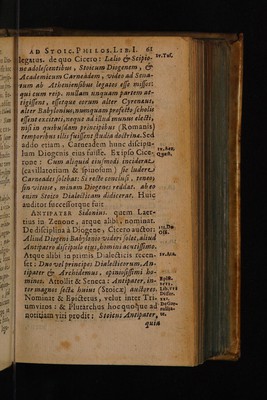 AD STOIC. PHILOS. LIB. I. 61
legatus. de quo Cicero: Lælio & Scipio-
ne adolescentibus, Stoicum Diogenem, &
Academicum Carneadem, video ad Sena-
tum ab Atheniensibus legatos esse missos:
qui cum reip. nullam unquam partem at-
tigissent, essetque eorum alter Cyrenæus,
alter Babylonius, numquam profecto scholis
essent excitati, neque ad illud munus electi,
nisi in quibusdam principibus (Romanis)
temporibus illis fuissent studia doctrinæ. Sed
addo etiam, Carneadem hunc discipu-
lum Diogenis eius fuisse. Exipso Cice-
rone: Cum aliquid eiusmodi inciderat
(cavillatorium & spinosum) sic ludere
Carneades solebat: Si recte conclusi, teneo;
sin vitiose, minam Diogenes reddat. ab eo
enim Stoico Dialecticam didicerat. Huic
auditor successorque fuit
ANTIPATER Sidonius. quem Laer-
tius in Zenone, atque alibi, nominat.
De disciplina à Diogene, Cicero auctor:
Aliud Diogeni Babylonio videri solet, aliud
Antipatro discipulo eius, homini acutissimo.
Atque alibi in primis Dialecticis recen-
set: Duo vel principes Dialecticorum, An-
tipater & Archidemus, spinosissimi ho-
mines. Attollit & Seneca: Antipater, in-
ter magnos sectæ huius (Stoicæ) auctores.
Nominat & Epictetus, velut inter Tri-
umviros: & Plutarchus hoc quoque ad
notitiam viri prodit: Stoicus Antipater,
quia
IV. Tusc.
III. De
Off.
IV. Aca.